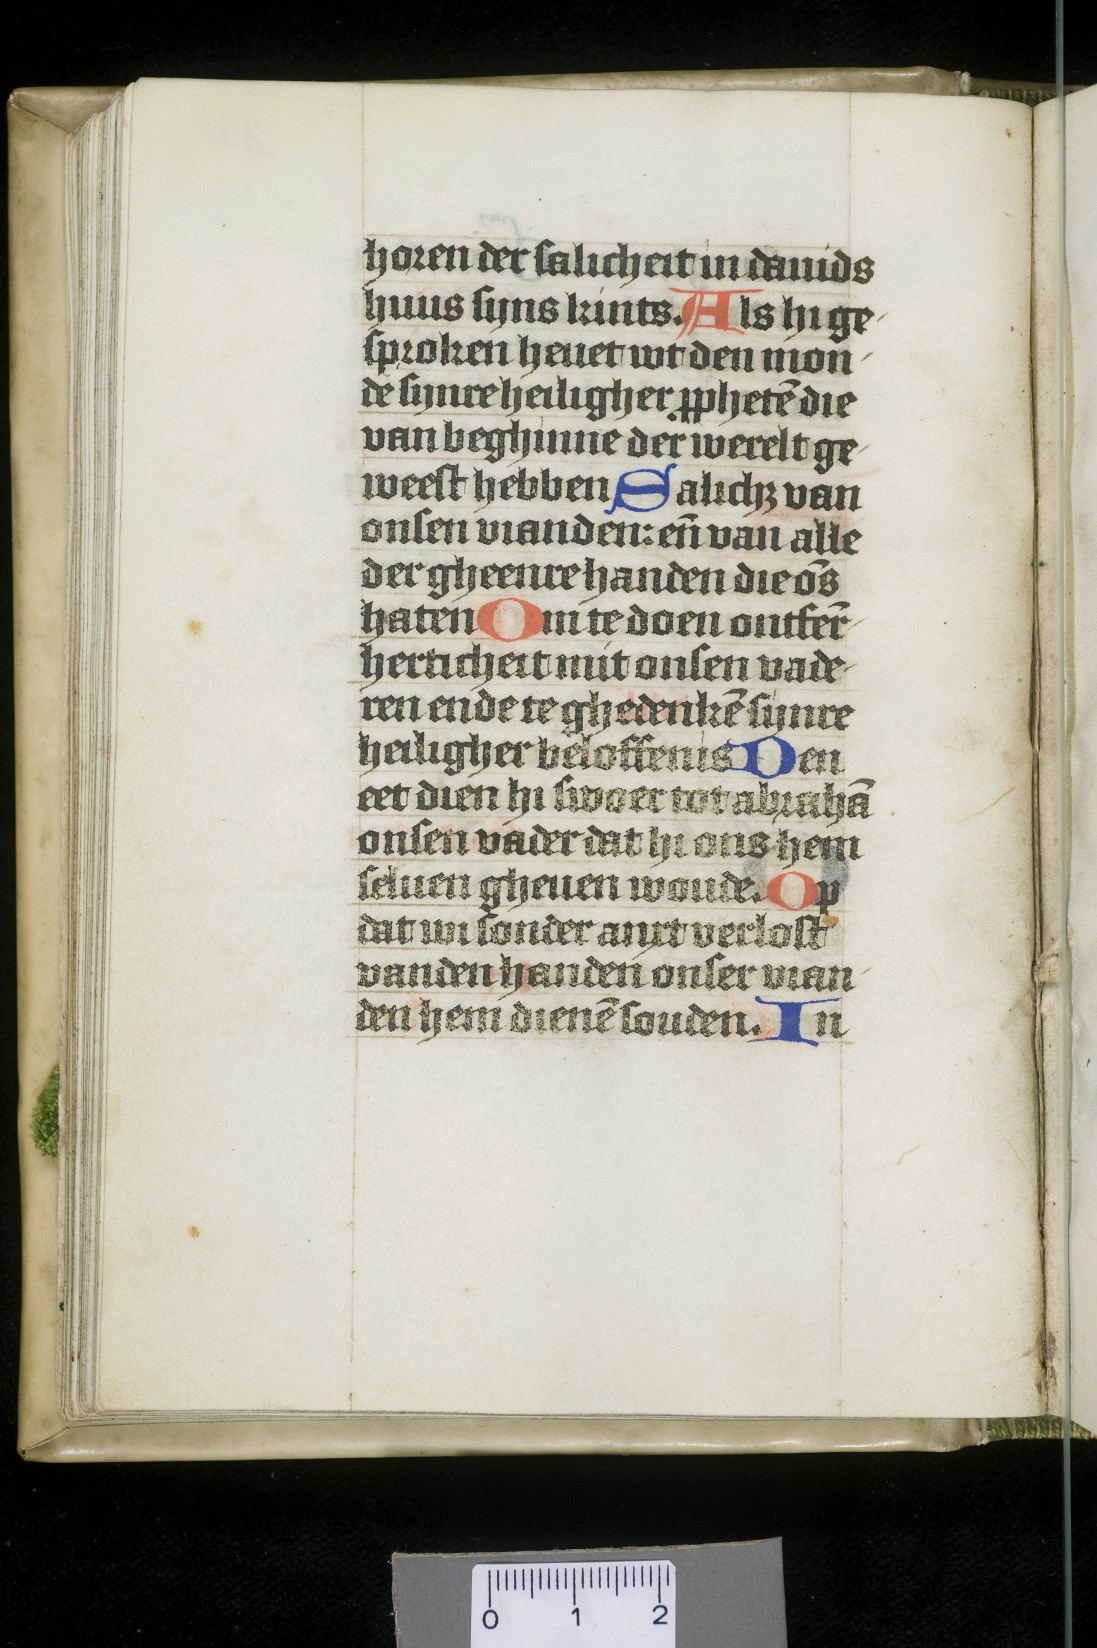 horen der salicheit in dauids
huus sijns kints. Als hi ge-
sproken heuet wt den mon-
de sijnre heiligher ꝓphetē die
van beghinne der werelt ge-
weest hebben Salichꝫ van
onsen vianden: en̄ van alle
der gheenre handen die ōs
haten Om te doen ontfer̄-
herticheit mit onsen vade-
ren ende te ghedenkē sijnre
heiligher beloffenis Den
eet dien hi swoer tot abrahā
onsen vader dat hi ons hem
seluen gheuen woude. Op
dat wi sonder anxt verlost
vanden handen onser vian-
den hem dienē souden. In
0 1 2